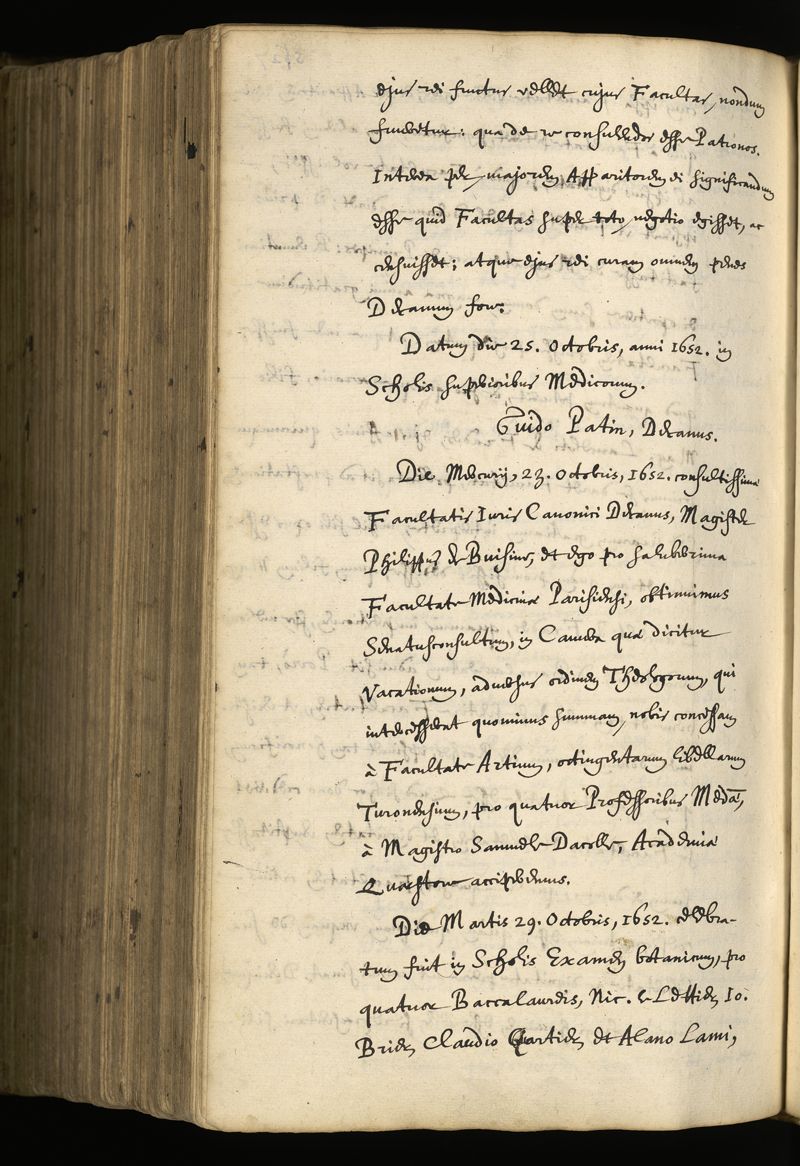 ejus rei fructus vellet cujus Facultas, nondum
frueretur: qua de re consulendos esse Patronos.
Interea per majorem Apparitorem ei significandum
esse quid Facultas super toto negotio egisset, ac
censuisset; atque ejus rei curam omnem penes
Decanum fore.
Datum die 25. Octobris, anni 1652. in
Scholis superioribus Medicorum.
Guido Patin, Decanus.
Die Mercurij, 23. Octobris, 1652. consultissimæ
Facultatis Iuris Canonici Decanus, Magister
Philippus de Buisine, et ego pro saluberrima
Facultate Medicinæ Parisiensi, obtinuimus
Senatusconsultum, in Camera quæ dicitur
Vacationum, adversus ordinem Theologorum, qui
intercesserat quominus summam, nobis concessam
à Facultate Artium, octingentarum libellarum
Turonensium, pro quatuor Professoribus
à Magistro Samuele Dacolle, Academiæ
Quæstore acciperemus.
Die Martis 29. Octobris, 1652. celebra-
tum fuit in Scholis Examen botanicum, pro
quatuor Baccalaureis, Nic. Io.
Brien, Claudio Quartier et Alano Lami,